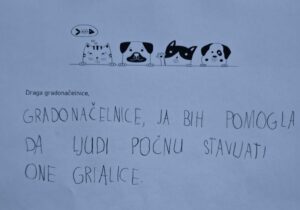 Draga gradonačelnice,
GRADONAČELNICE, JA BIH POMOGLA
DA LJUDI POČNU STAVLJATI
ONE GRIJALICE.